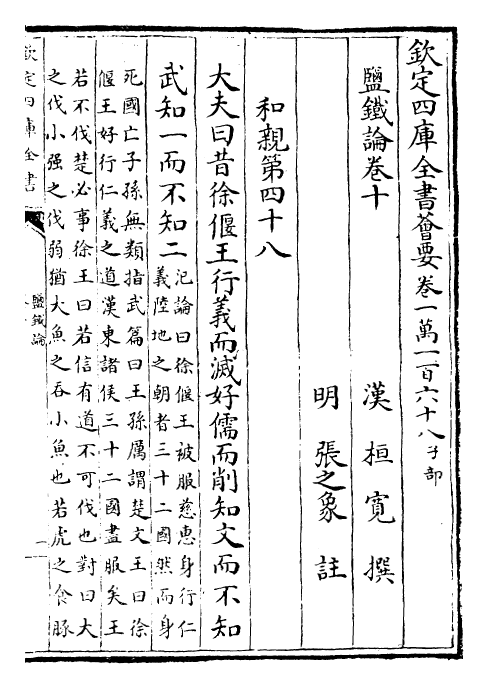 欽定四庫全書薈要卷一萬一千一百六十八子部
鹽鐵論卷十
漢桓寬撰
明張之象註
和親第四十八
大夫曰昔徐偃王行義而滅好儒而削知文而不知
武知一而不知二
氾論曰徐偃王被服慈惠身行仁
義陸地之朝者三十二國然而身
死國亡子孫無類指武篇曰王孫厲謂楚文王曰徐
偃王好行仁義之道漢東諸侯三十二國盡服矣王
若不伐楚必事徐王曰若信有道不可伐也對曰大
之伐小强之伐弱猶大魚之吞小魚也若虎之食豚
欽定四庫全書
鹽鐵論
一